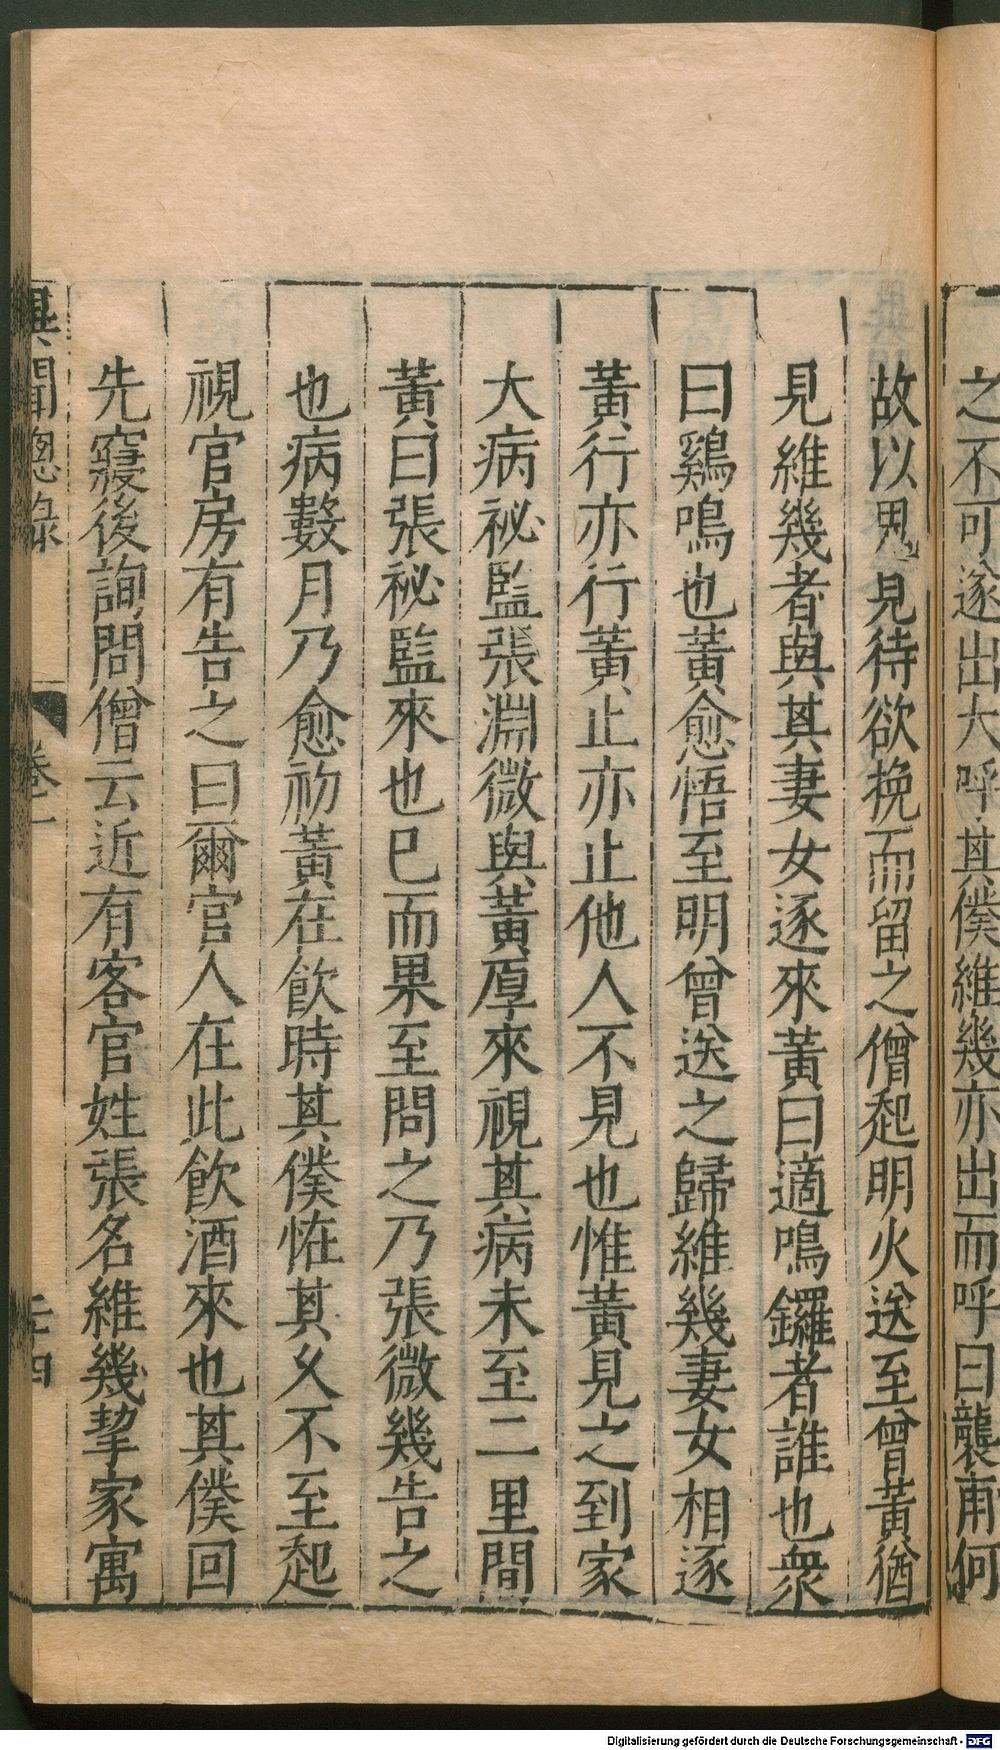 之不可遂出大呼其僕維幾亦出而呼曰襲甫何
故以鬼見待欲挽而留之僧起明火送至曾黃猶
見維幾者與其妻女逐來黃曰適鳴鑼者誰也衆
曰鷄鳴也黃愈悟至明曾送之歸維幾妻女相逐
黃行亦行黃止亦止他人不見也惟黃見之到家
大病祕監張淵微與黃厚來視其病未至二里間
黃曰張祕監來也巳而果至問之乃張微幾告之
也病數月乃愈初黃在飲時其僕恠其乆不至起
視官房有告之曰爾官人在此飲酒來也其僕回
先寢後詢問僧云近有客官姓張名維幾挈家寓
異聞總錄
卷一
二四
Digitalisierung gefördert durch die Deutsche Forschungsgemeinschaft - DFG